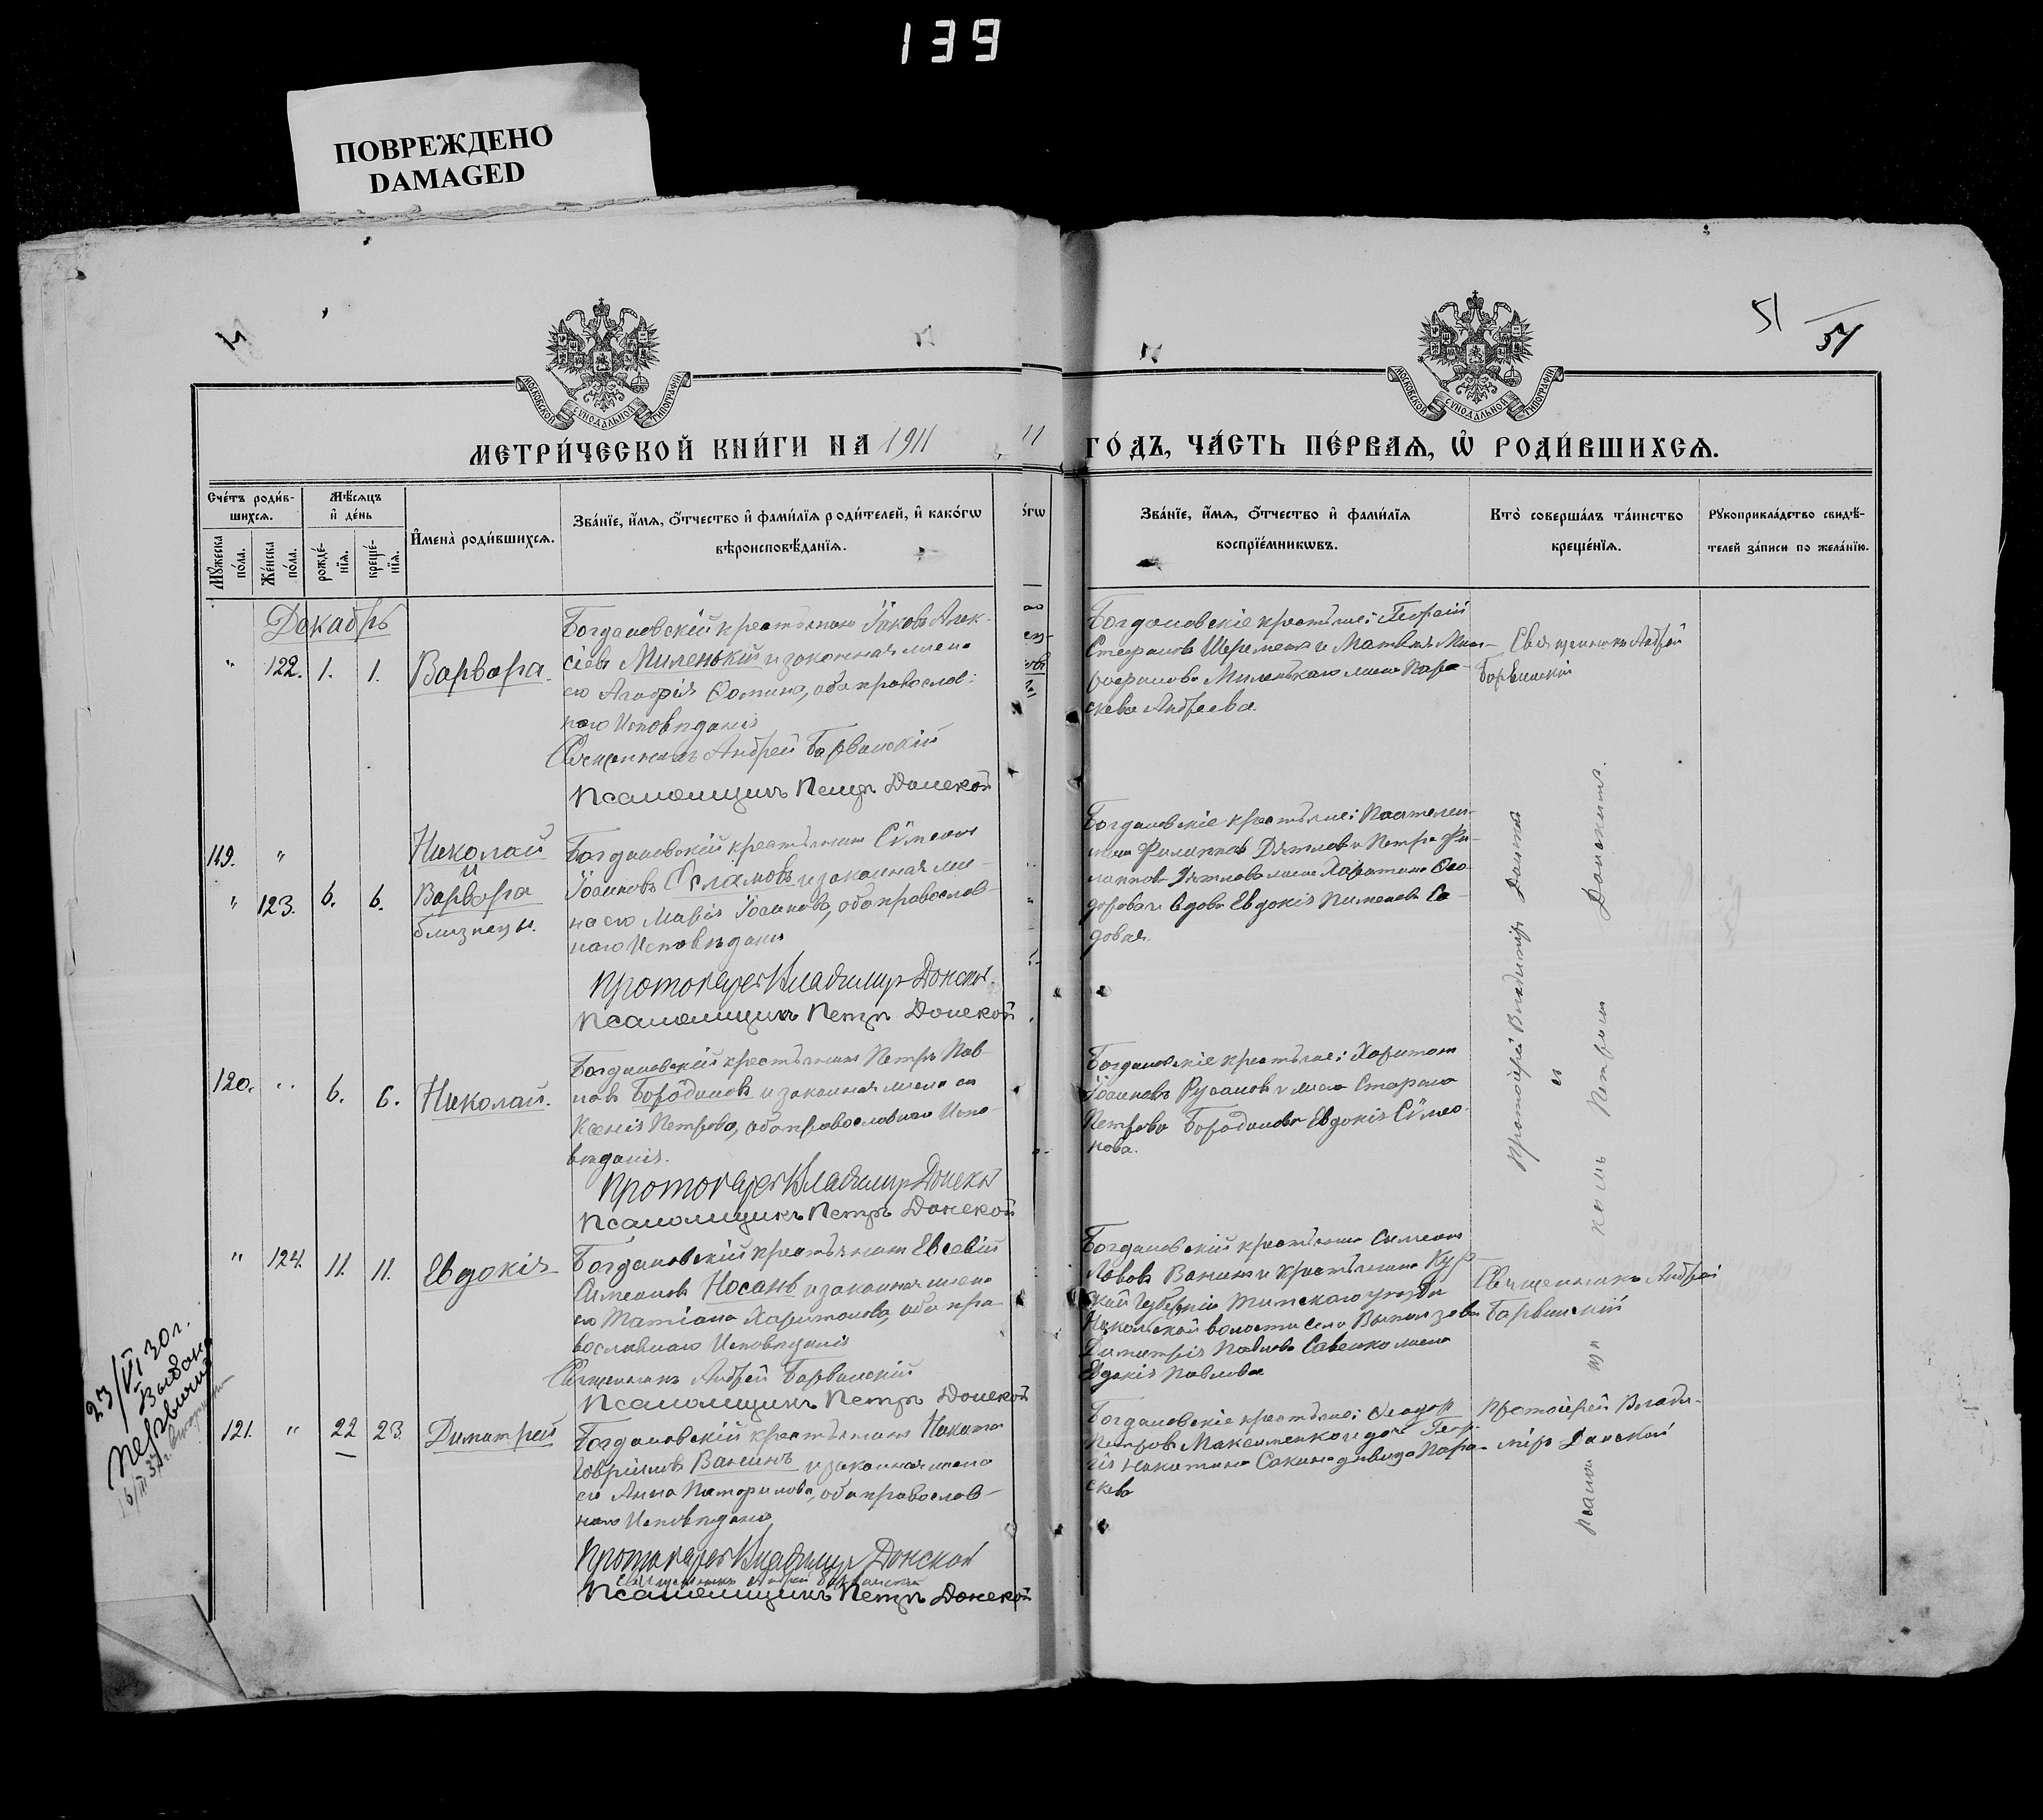 139
ПОВРЕЖДЕНО
DAMAGED
51
51
МОСКОВСКОЙ СѴНОДАЛЬНОЙ ТИПОГРАФІИ
МОСКОВСКОЙ СѴНОДАЛЬНОЙ ТИПОГРАФІИ
МЕТРИ́ЧЕСКОЙ КНИ́ГИ НА 1911
11
ГО́ДЪ, ЧА́СТЬ ПЕ́РВАѦ, Ѽ РОДИ́ВШИХСѦ.
Сче́тъ роди́в-
шихсѧ.
Мѣ́сѧцъ
и҆ де́нь
Мꙋ́жеска
по́ла.
Же́нска
по́ла.
рожде́-
нїѧ.
креще́-
нїѧ.
И҆мена̀ роди́вшихсѧ.
Зва́нїе, и҆́мѧ, ѻ҆́тчество и҆ фами́лїѧ роди́телей, и҆ како́гѡ
вѣроисповѣ́данїѧ.
о́гѡ
Зва́нїе, и҆́мѧ, ѻ҆́тчество и҆ фами́лїѧ
воспрїе́мникѡвъ.
Кто̀ соверша́лъ та́инство
креще́нїѧ.
Рꙋкоприкла́дство свидѣ́-
телей за́писи по жела́нїю.
Декабрь
" 122. 1. 1. Варвара.
Богдановскій крестьянинъ Іаковъ Алек-
сіевъ Миленькій и законная жена
его Агафія Фомина, оба православ-
наго Исповѣданія
Священникъ Андрей Барвинскій
Псаломщикъ Петръ Донской
Богдановскіе крестьяне: Георгій
Стефановъ Шеремет и
Миленькаго жена Пара-
скева Андреева.
Священникъ Андрей
Барвинскій
119. " Николай
и
" 123. 6. 6. Варвара
близнецы.
Богдановскій крестьянинъ Сѵмеонъ
Іоанновъ и законная же-
на его Марія Іоаннова, оба православ-
наго Исповѣданія
Протоіерей Владимиръ Донской
Псаломщикъ Петръ Донской
Богдановскіе крестьяне: Пантелеи-
монъ Филипповъ Дятловъ и Петра Фи-
липпова Дятлова жена Харитина Ѳео-
дорова и вдова Евдокія Пименова Са-
довая.
120. " 6. 6. Николай.
Богдановскій крестьянинъ Петръ Пав-
ловъ Бородиновъ и законная жена его
Ксенія Петрова, оба православнаго Испо-
вѣданія.
Протоіерей Владимиръ Донской
Псаломщикъ Петръ Донской
Богдановскіе крестьяне: Харитонъ
Іоанновъ Русановъ и жена
Петрова Бородинова Евдокія Сѵмео-
нова.
Протоіерей Владимиръ Донской
съ
псаломщикомъ Петромъ Донскимъ.
" 124. 11. 11. Евдокія
Богдановскій крестьянинъ Евсевій
Симеоновъ Носань и законная жена
его Татіана Харитонова, оба пра-
вославнаго Исповѣданія
Священникъ Андрей Барвинскій
Псаломщикъ Петръ Донской
Богдановскій крестьянинъ Симеонъ
Ванинъ и крестьянина Кур-
ской Губерніи Тимскаго уѣзда
Никольской волости села
Димитрія Павлова Савенко жена
Евдокія Павлова
Священникъ Андрей
Барвинскій
23/VI 30 г.
Выдана
121. " 22 23. Димитрій
Богдановскій крестьянинъ Никита
Гавріиловъ Ванинъ и законная жена
его Анна оба православ-
наго Исповѣданія
Протоіерей Владимиръ Донской
Священникъ Андрей Барвинскій
Псаломщикъ Петръ Донской
Богдановскіе крестьяне: Ѳеодоръ
Петровъ Максименко и дочь Геор-
гія Никитина дѣвица Пара-
скева
Протоіерей Влади-
міръ Донской